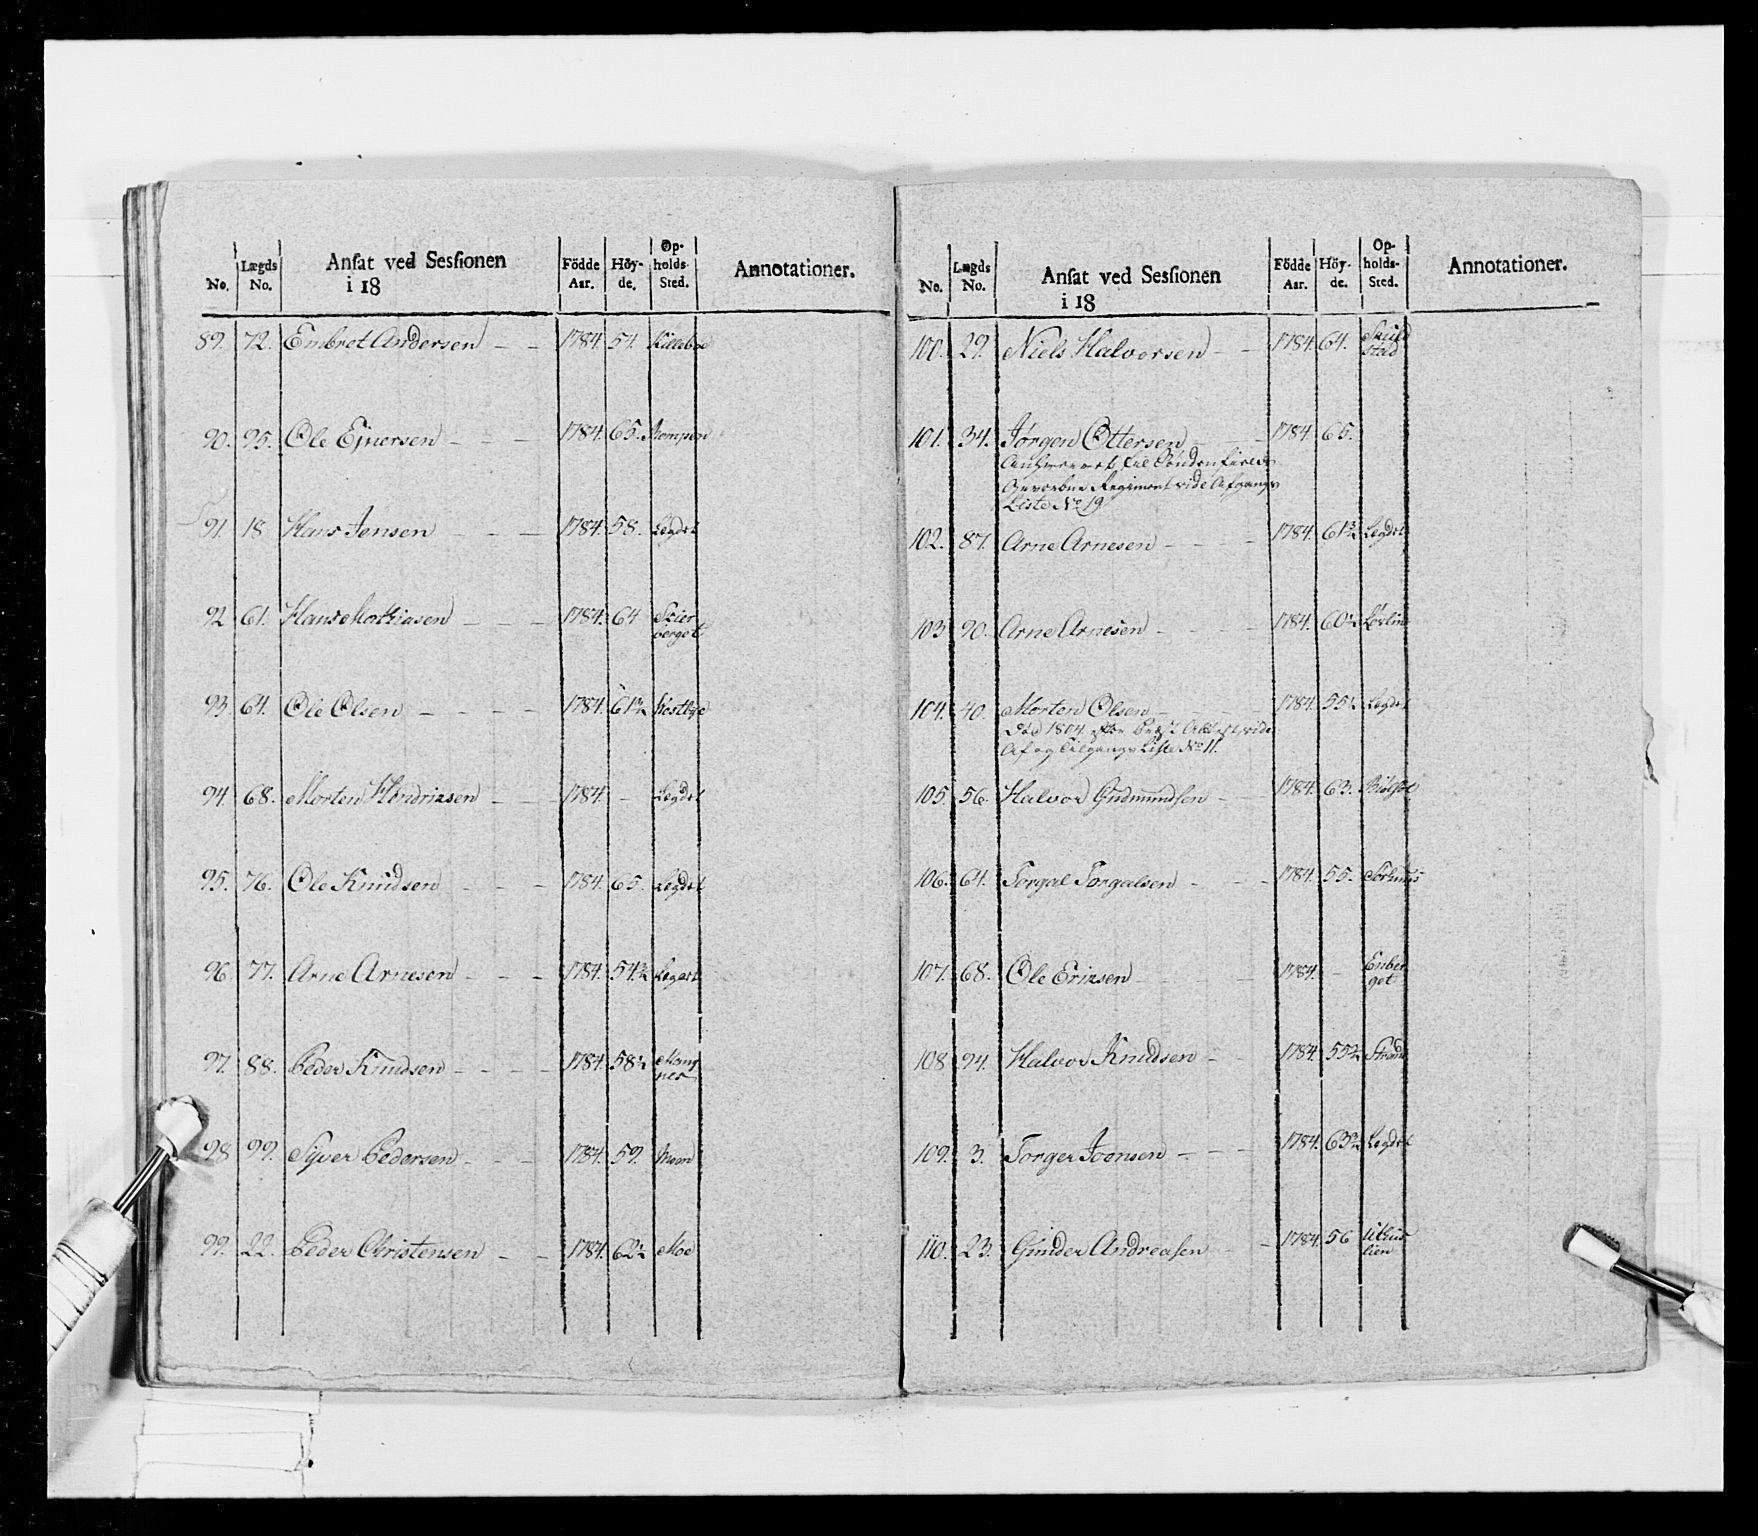 No. Lægds No. Ansat ved Sessionen i 18 Födde Aar. Höy-de. Op-holds-Sted. Annotationer.
89. 72. Embret Andersen 1784. 57.
90. 95. Ole Ejnersen 1784. 65. Rompen
91. 18 Hans Jensen 1784. 58. Legdet
92 61. Hans Mathiasen 1784. 64 Skier
berget
93. 64. Ole Olsen 1784. 61¾ Kestbye
94. 68. Morten Hendriksen 1784. - Legdet
95. 76. Ole Knudsen 1784. 65. Legdet
96. 77. Arne Arnesen 1784. 54¾ Legdet
97. 88. Peder Knudsen 1784. 58½ Mang
nes
98 99. Syver Pedersen 1784. 59. Moen
99. 22. Peder Christensen 1784. 62½ Moe
No. Lægds No. Ansat ved Sessionen i 18 Födde Aar. Höy-de. Op-holds-Sted. Annotationer.
100. 29. Niels Halvorsen 1784. 64. Skuld
stad
101. 34. Jørgen Ottersen 1784 65.
til Söndenfields
Gevorbne Regiment vide Afgangs
Liste No 19
102. 87. Arne Arnesen 1784. Legdet
103 90. Arne Arnesen 1784. 60½
104. 40. Morten Olsen 1784. 55½ Legdet
Död 1804 vide
Af og Tilgangs Liste No 11.
105. 56. Halvor Gudmundsen 1784. 63.
106. 64. Torgal Torgalsen 1784. 55. Torhuus
107. 68. Ole Eriksen 1784. - Enber
get
108 94. Halvor Knudsen 1784. Strand
109. 3. Torger Joensen 1784. Legdet
110. 23. Gunder Andreasen 1784. 56
lien